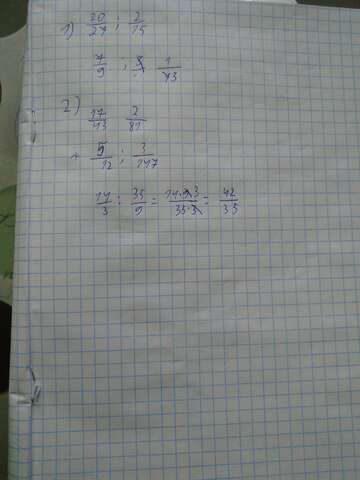 1) 20/27 ; 2/15
7/9 ; 1/73
2) 17/43 2/81
5/12 ; 3/147
14/3 : 35/9 = 14·9 3/35·3 = 42/35